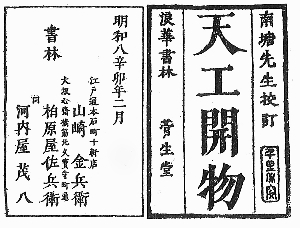 南塘先生校訂
天工開物
浪華書林 菅生堂
明和八辛卯年二月
書林
江戸通本石町十軒店
山崎金兵衛
大坂心斎橋筋北久宝寺町
柏原屋佐兵衛
同
河内屋茂八